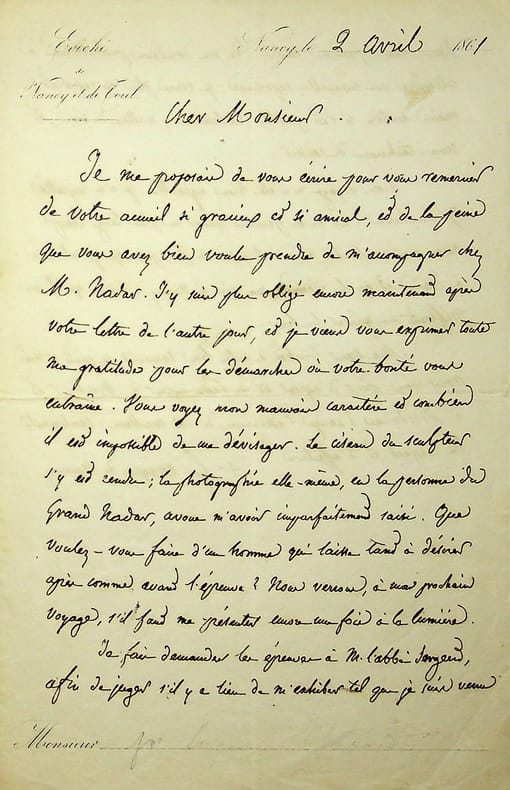 Evêché Nancy, le 2 avril 1861
de
Nancy et de Toul
Cher Monsieur.
Je me proposais de vous écrire pour vous remercier
de votre accueil si gracieux et si amical, et de la peine
que vous avez bien voulu prendre de m'accompagner chez
M. Nadar. J'y suis plus obligé encore maintenant après
votre lettre de l'autre jour, et je viens vous exprimer toute
ma gratitude pour les démarches où votre bonté vous
entraîne. Vous voyez mon mauvais caractère et combien
il est impossible de me dévisager. Le ciseau du sculpteur
s'y est rendu ; la photographie elle-même, en la personne du
Grand Nadar, avoue m'avoir imparfaitement saisi. Que
voulez-vous faire d'un homme qui laisse tant à désirer
après comme avant l'épreuve ? Nous verrons, à mon prochain
voyage, s'il faut me présenter encore une fois à la lumière.
Je fais demander les épreuves à M. l'abbé
afin de juger s'il y a lieu de m'exhiber tel que je suis venu
Monsieur